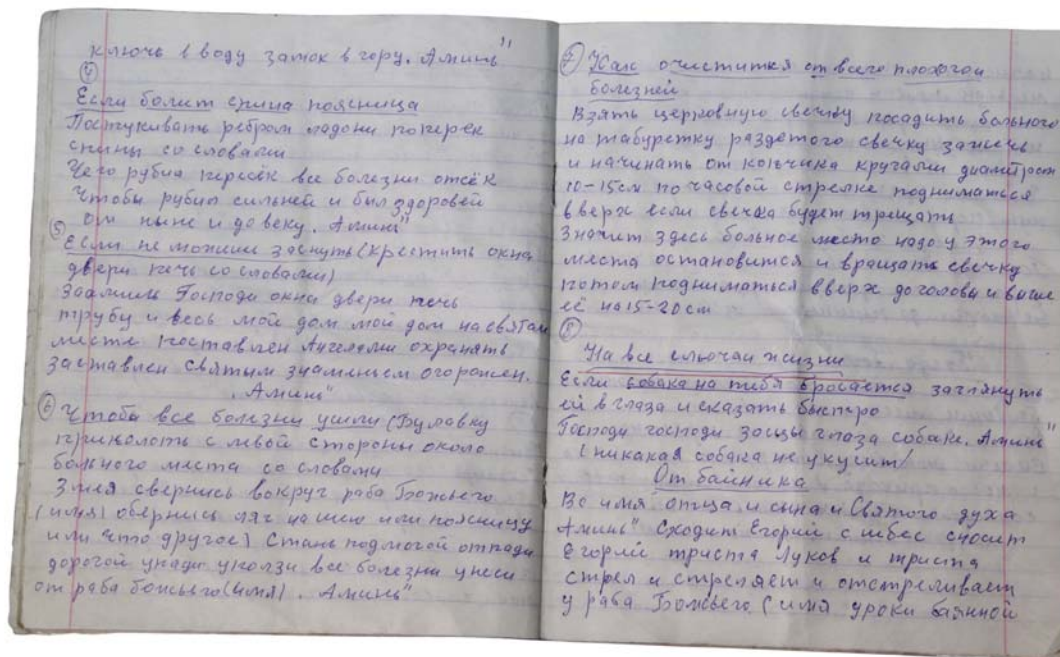 ключь в воду замок в гору. Аминь"
④
Если болит спина поясница
Постукивать ребром лодони поперек
спины со словами
Чего рубил пересёк все болезни отсёк
Чтобы рубил сильней и был здоровей
от ныне и до веку. Аминь"
⑤
Если не можеш заснуть (крестить окна
двери печь со словами)
Зааминь Господи окна двери печь
трубу и весь мой дом мой дом на святам
месте поставлен Ангелами охранять
заставлен святым знаменьем огорожен.
. Аминь"
⑥ Чтобы все болезни ушли (Булавку
приколоть с левой стороны около
больного места со словами
Змея свернись вокруг раба Божьего
(имя) обернись ляг на шею или поясницу
или что другое) Стань подмогой отпади
дорогой упади уползи все болезни унеси
от раба божьего (имя). Аминь"
⑦ Как очистится от всего плохогои
болезней
Взять церковную свечку посадить больного
на табуретку раздетого свечку зажечь
и начинать от копчика кругами диаметром
10-15см по часовой стрелке подниматься
вверх если свечка будет трещать
Значит здесь больное место надо у этого
места остановится и вращать свечку
потом подниматься вверх до головы и выше
её на 15-20см
⑧
На все случаи жизни
Если собака на тебя бросается заглянуть
ей в глаза и сказать быстро
Господи господи глаза собаке. Аминь"
(никакая собака не укусит)
От байника
Во имя отца и сына и Святого духа
Аминь" Сходит Егорий с небес сносит
Егорий триста Луков и триста
стрел и стреляет и отстреливает
у раба Божьего (имя уроки баянной